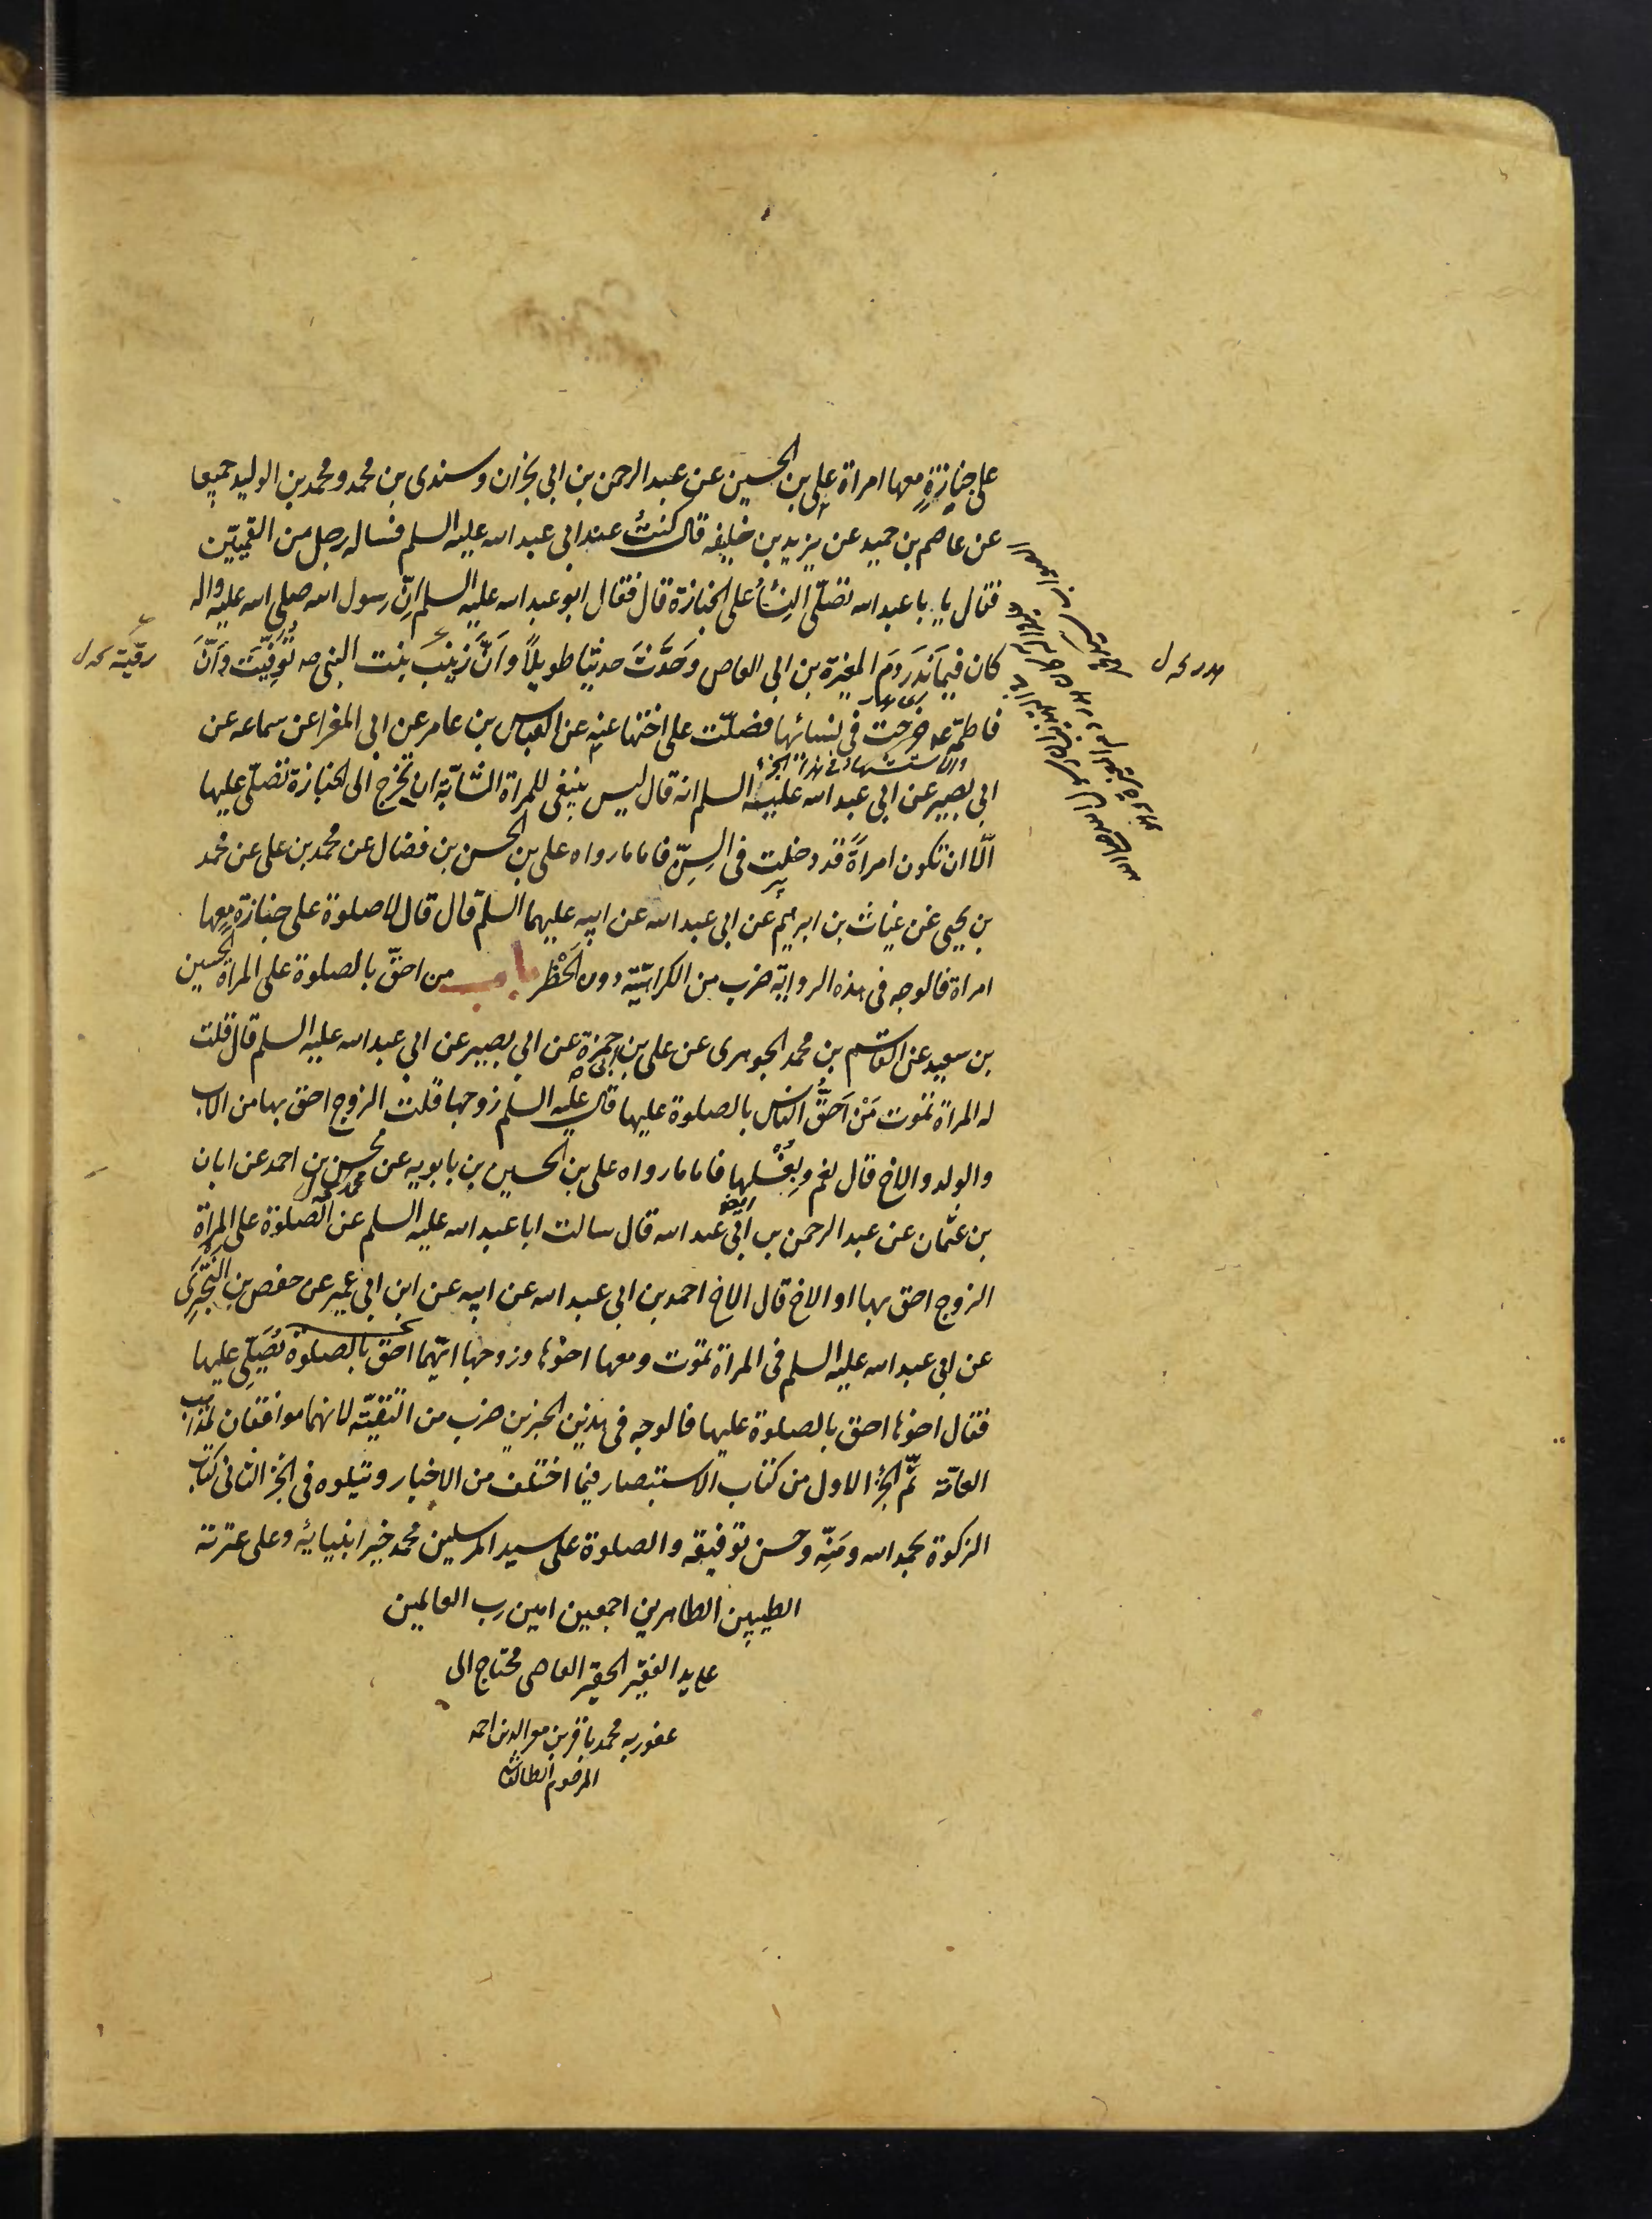 على جنازة معها امراة على بن الحسين عن عبد الرحمن بن ابى نجران وسندى بن محمد ومحمد بن الوليد جميعا
عن عاصم بن حميد عن يزيد بن خليفه قال كنت عند ابى عبد الله عليه السلم فساله رجل من القميين
فقال يا با عبد الله تصلى النساء على الجنازة قال فقال ابو عبد الله عليه السلم ان رسول الله صلى الله عليه واله
كان فيما نذر دم المغيرة بن ابى العاص وحدث حديثا طويلا وان زينب بنت النبى صه توفيت وان
رقية
فاطمة ع خرجت فى نسائها فصلت على اختها عنه عن العباس بن عامر عن ابى المغرا عن سماعه عن
ابى بصير عن ابى عبد الله عليه السلم انه قال ليس ينبغى للمراة الشابة ان تخرج الى الجنازة تصلى عليها
الا ان تكون امراة قد دخلت فى السن فاما ما رواه على بن الحسن بن فضال عن محمد بن على عن محمد
بن يحيى عن غياث بن ابرهيم عن ابى عبد الله عن ابيه عليهما السلم قال قال لا صلوة على جنازة معها
امراة فالوجه فى هذه الرواية ضرب من الكراهية دون الحظر باب من احق بالصلوة على المراة الحسين
بن سعيد عن القاسم بن محمد الجوهرى عن على بن ابى حمزة عن ابى بصير عن ابى عبد الله عليه السلم قال قلت
له المراة تموت من احق الناس بالصلوة عليها قال عليه السلم زوجها قلت الزوج احق بها من الاب
والولد والاخ قال نعم ويغسلها فاما ما رواه على بن الحسين بن بابويه عن محسن بن احمد عن ابان
بن عثمان عن عبد الرحمن بن ابى عبد الله قال سالت ابا عبد الله عليه السلم عن الصلوة على المراة
الزوج احق بها او الاخ قال الاخ احمد بن ابى عبد الله عن ابيه عن ابن ابى عمير عن حفص بن البخترى
عن ابى عبد الله عليه السلم فى المراة تموت ومعها اخوها وزوجها ايهما احق بالصلوة يصلى عليها
فقال اخوها احق بالصلوة عليها فالوجه فى هذين الخبرين ضرب من التقية لانهما موافقان لمذاهب
العامة تم الجزء الاول من كتاب الاستبصار فيما اختلف من الاخبار ويتلوه فى الجزء الثانى كتاب
الزكوة بحمد الله ومنه وحسن توفيقه والصلوة على سيد المرسلين محمد خير انبيائه وعلى عترته
الطيبين الطاهرين اجمعين امين رب العالمين
على يد الفقير الحقير العاصى محتاج الى
عفو ربه محمد باقر بن
المرحوم الطالقانى